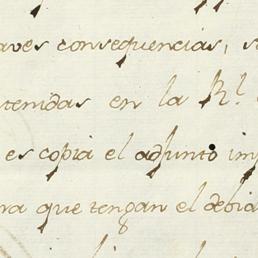 aves consequencias, s
tenidas en la Rl.
es copia el adjunto im
ra que tengan el debid